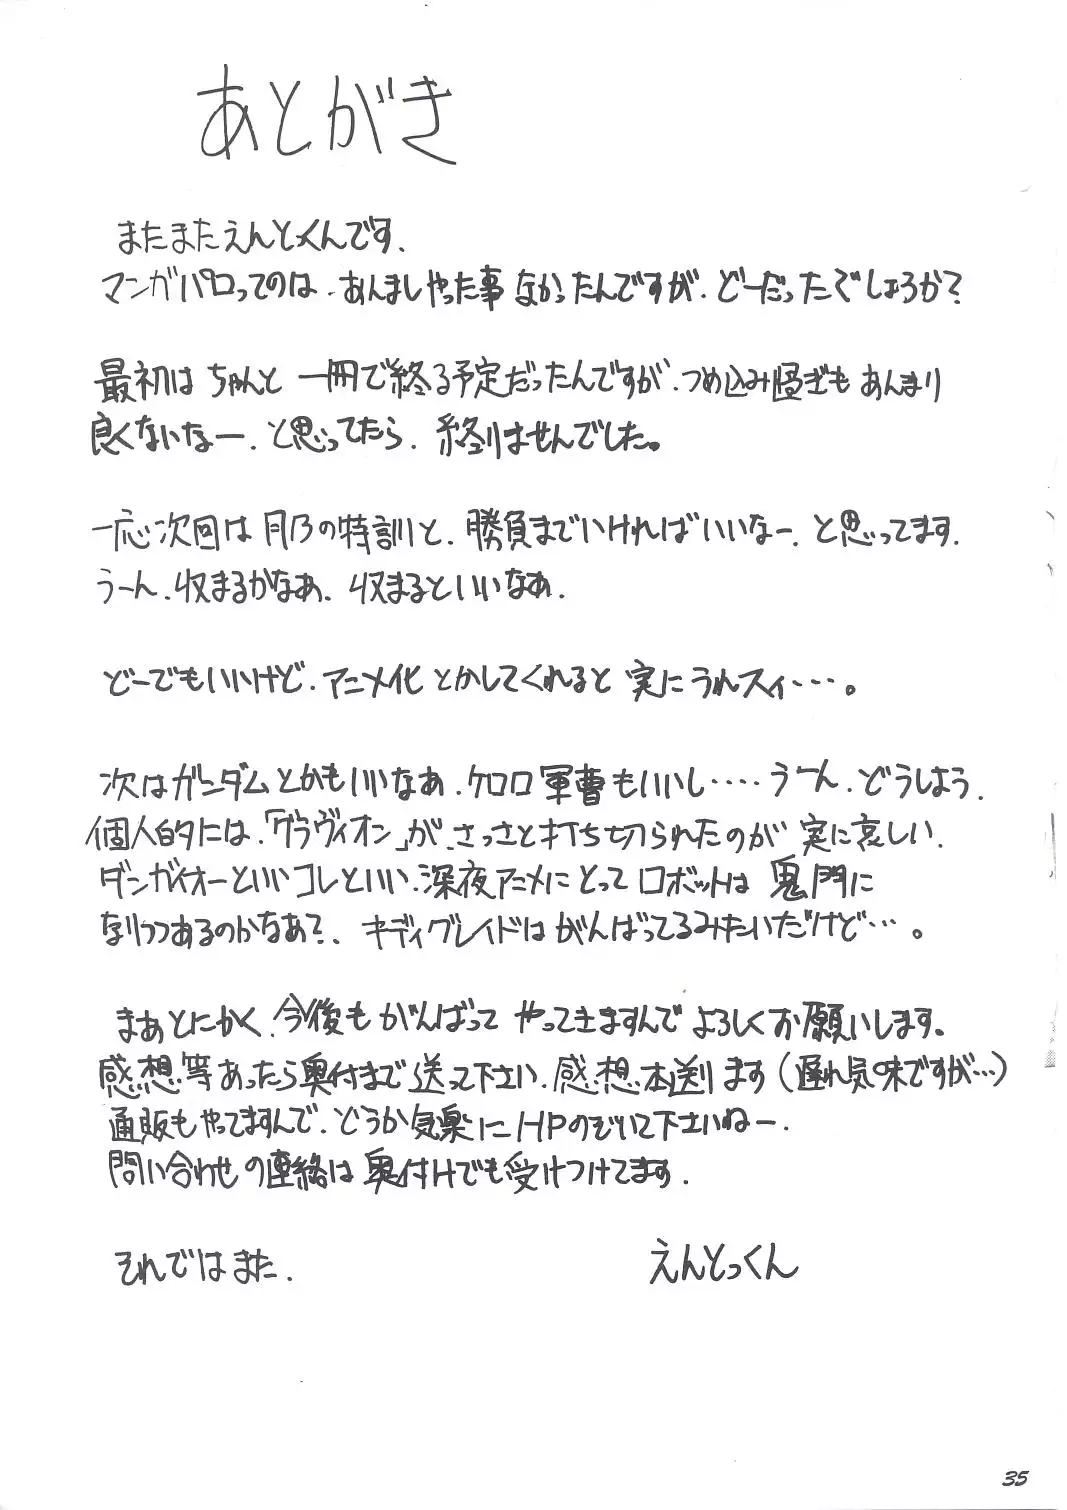 あとがき
またまたえんとっくんです.
マンガパロってのは、あんましやった事なかったんですが、どーだったでしょうか?
最初はちゃんと一冊で終る予定だったんですが、つめ込み過ぎもあんまり
良くないなー、と思ってたら、終りませんでした。
一応次回は月乃の特訓と、勝負までいければいいなー、と思ってます.
うーん、収まるかなあ、収まるといいなあ.
どーでもいいけど、アニメ化とかしてくれると実にうれスィ・・・・。
次はガンダムとかもいいなあ、ケロロ軍曹もいいし・・・・うーん、どうしよう.
個人的には、「グラヴィオン」が、さっさと打ち切られたのが実に哀しい.
ダンガイオーといいコレといい、深夜アニメにとってロボットは鬼門に
なりつつあるのかなあ?、キディグレイドはがんばってるみたいだけど・・・。
まあとにかく、今後もがんばってやってきますんでよろしくお願いします。
感想等あったら奥付まで送って下さい、感想本送ります(遅れ気味ですが…)
通販もやってますんで、どうか気楽にHPのぞいて下さいねー.
問い合わせの連絡は奥付けでも受けつけてます.
それではまた.
えんとっくん
35